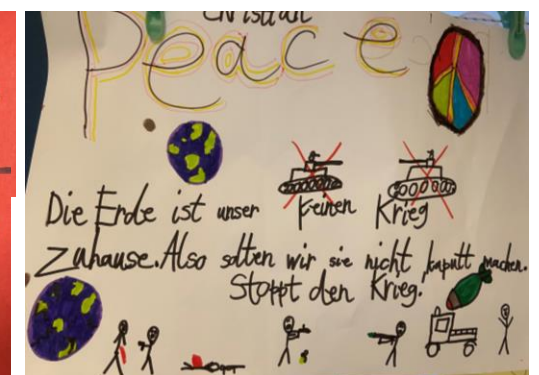 Christian
Peace
Die Erde ist unser keinen Krieg
Zuhause. Also solten wir sie nicht kaputt machen.
Stoppt den Krieg.